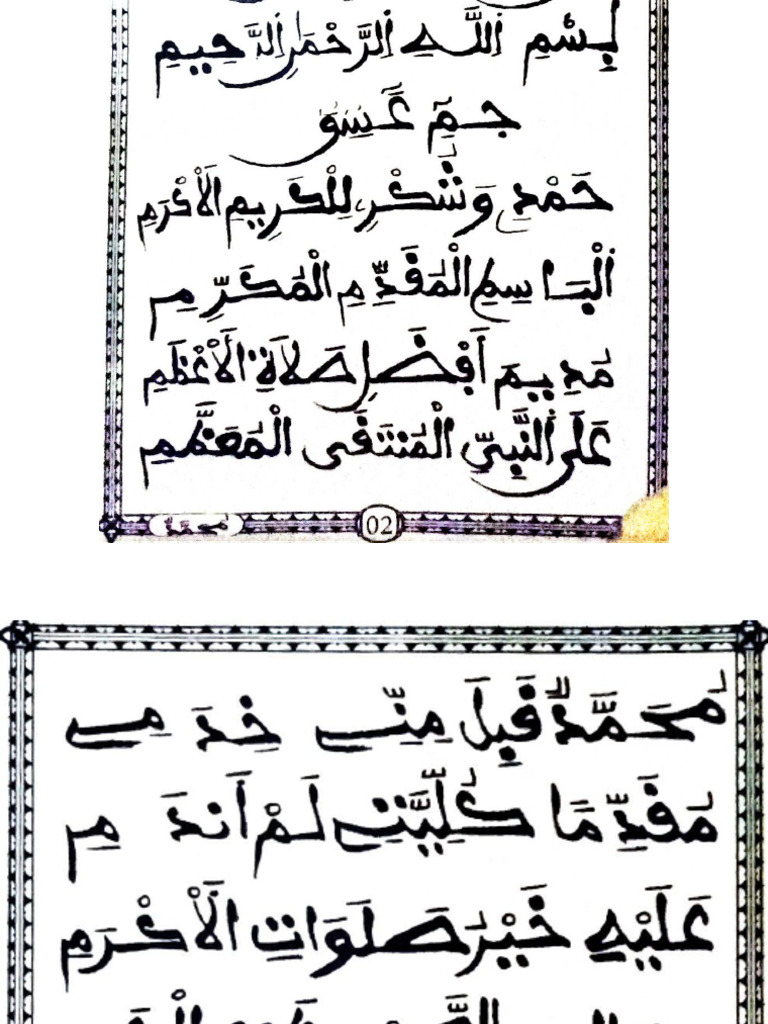 بِسْمِ اللَّهِ الرَّحْمَٰنِ الرَّحِيمِ
حَمْدِے وَشُكْرِ لِلْكَرِيمِ الَاْكْرَمِ
الْبَاسِمِ الْمُقَدِّمِ الْمُكَرِّمِ
مُدِيمَ أَفْضَلِ صَلَاةِ الَاْعْظَمِ
عَلَى النَّبِيِّ الْمُنتَقَى الْمُعَظَّمِ
02
مُحَمَّدٌ قَبِلَ مِنِّے خِدَمِے
مُقَدِّمًا كُلِّيَّتِے لَمْ أَندَمِ
عَلَيْهِ خَيْرُ صَلَوَاتِ الَاْكْرَمِ